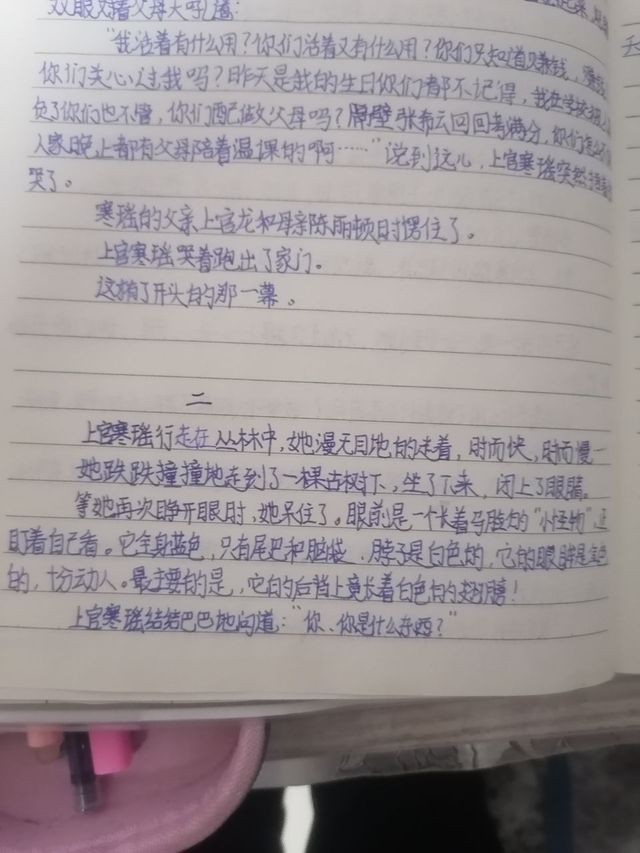 双眼对着父母大吼道:
"我活着有什么用?你们活着又有什么用?你们只知道
你们关心过我吗?昨天是我的生日你们都不记得,我在学校
负了你们也不管,你们配做父母吗?隔壁张希云回回考满分,你们怎么不
人家晚上都有父母陪着温课的啊……"说到这儿,上官寒瑶突然
哭了。
寒瑶的父亲上官龙和母亲陈丽顿时愣住了。
上官寒瑶哭着跑出了家门。
这就有了开头的那一幕。
二
上官寒瑶行走在丛林中,她漫无目地的走着,时而快,时而慢
她跌跌撞撞地走到了一棵古树下,坐了下来,闭上了眼睛。
等她再次睁开眼时,她呆住了。眼前是一个长着马脸的"小怪物",正
盯着自己看。它全身蓝色,只有尾巴和脑袋、脖子是白色的,它的眼睛是金色
的,十分动人。最主要的是,它的后背上竟长着白色的翅膀!
上官寒瑶结结巴巴地问道:"你、你是什么东西?"